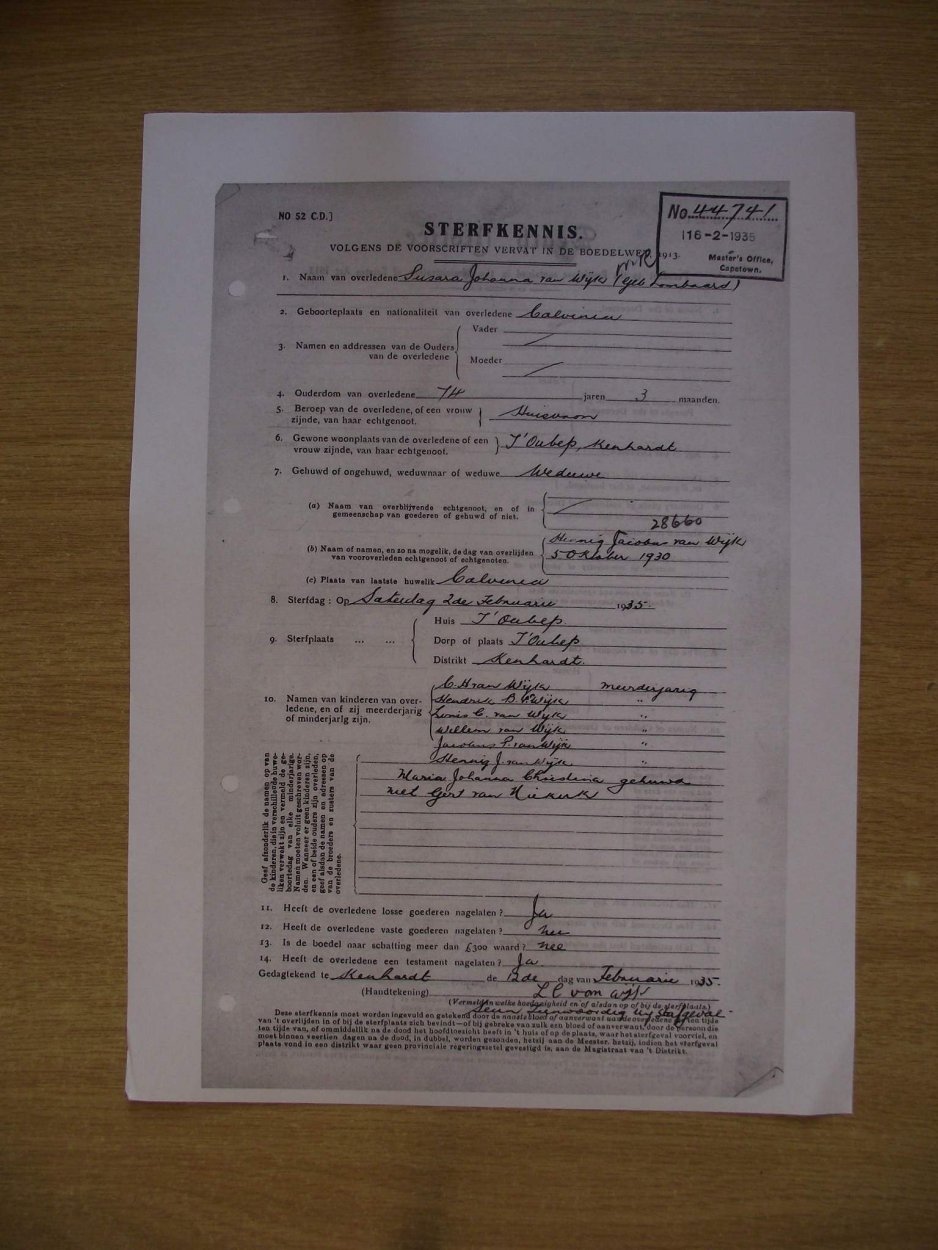 NO 52 C.D.]
No. 44741
16-2-1935
Master's Office,
Capetown.
STERFKENNIS.
VOLGENS DE VOORSCHRIFTEN VERVAT IN DE BOEDELWET, 1913.
1. Naam van overledene Susara Johanna van Wijk (geb Lombaard)
2. Geboorteplaats en nationaliteit van overledene Calvinia
3. Namen en addressen van de Ouders van de overledene
Vader /
Moeder /
4. Ouderdom van overledene 74 jaren 3 maanden.
5. Beroep van de overledene, of een vrouw zijnde, van haar echtgenoot. Huisvrouw
6. Gewone woonplaats van de overledene of een vrouw zijnde, van haar echtgenoot. T'Oubep, Kenhardt
7. Gehuwd of ongehuwd, weduwnaar of weduwe Weduwe
(a) Naam van overblijvende echtgenoot, en of in gemeenschap van goederen of gehuwd of niet. /
28660
(b) Naam of namen, en zo na mogelik, de dag van overlijden van vooroverleden echtgenoot of echtgenoten. Hennig Jacobus van Wijk
5 Oktober 1930
(c) Plaats van laatste huwelik Calvinia
8. Sterfdag: Op Saterdag 2de Februarie 1935.
9. Sterfplaats ... ...
Huis T'Oubep
Dorp of plaats T'Oubep
Distrikt Kenhardt.
10. Namen van kinderen van overledene, en of zij meerderjarig of minderjarig zijn.
C. H van Wijk meerderjarig
Hendrik B. v Wijk "
Louis C. van Wijk "
Willem van Wijk "
Jacobus P. van Wijk "
Hennig J. van Wijk "
Maria Johanna Christina gehuwd
met Gert van Niekerk
Geef afzonderlik de namen op van
de kinderen, die in verschillende huwe-
liken verwekt zijn en vermeld de ge-
boortedag van elke minderjarige.
Namen moeten voluit geschreven wor-
den. Wanneer er geen kinderen zijn,
en een of beide ouders zijn overleden,
geef alsdan de namen en adressen op
van de broeders en zusters van de
overledene.
11. Heeft de overledene losse goederen nagelaten? Ja
12. Heeft de overledene vaste goederen nagelaten? nee
13. Is de boedel naar schatting meer dan £300 waard? nee
14. Heeft de overledene een testament nagelaten? Ja
Gedagtekend te Kenhardt de 2de dag van Februarie 1935.
(Handtekening) L C van Wijk
(Vermeld in welke hoedanigheid en of alsdan op of bij de sterfplaats.)
Seun teenwoordig by sterfgeval
Deze sterfkennis moet worden ingevuld en getekend door de naaste bloed of aanverwant van de overledene ten tijde
van 't overlijden in of bij de sterfplaats zich bevindt—of bij gebreke van zulk een bloed of aanverwant, door de persoon die
ten tijde van, of onmiddellik na de dood het hoofdtoezicht heeft in 't huis of op de plaats, waar het sterfgeval voorviel, en
moet binnen veertien dagen na de dood, in dubbel, worden gezonden, hetzij aan de Meester, hetzij, indien het sterfgeval
plaats vond in een distrikt waar geen provinciale regeringszetel gevestigd is, aan de Magistraat van 't Distrikt.